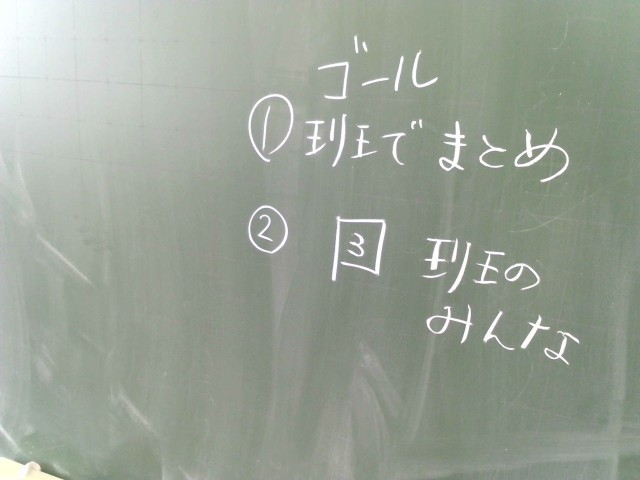 ゴール
①班でまとめ
② 3 班の
みんな